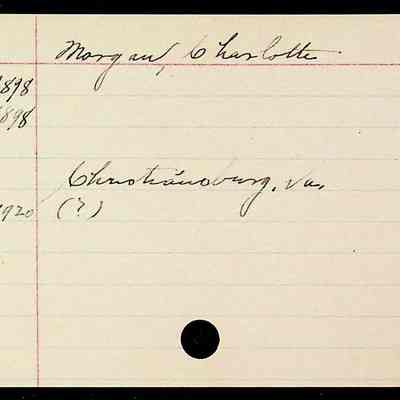 Morgan, Charlotte
1898
1898
Christiansburg, Va.
1920 (?)